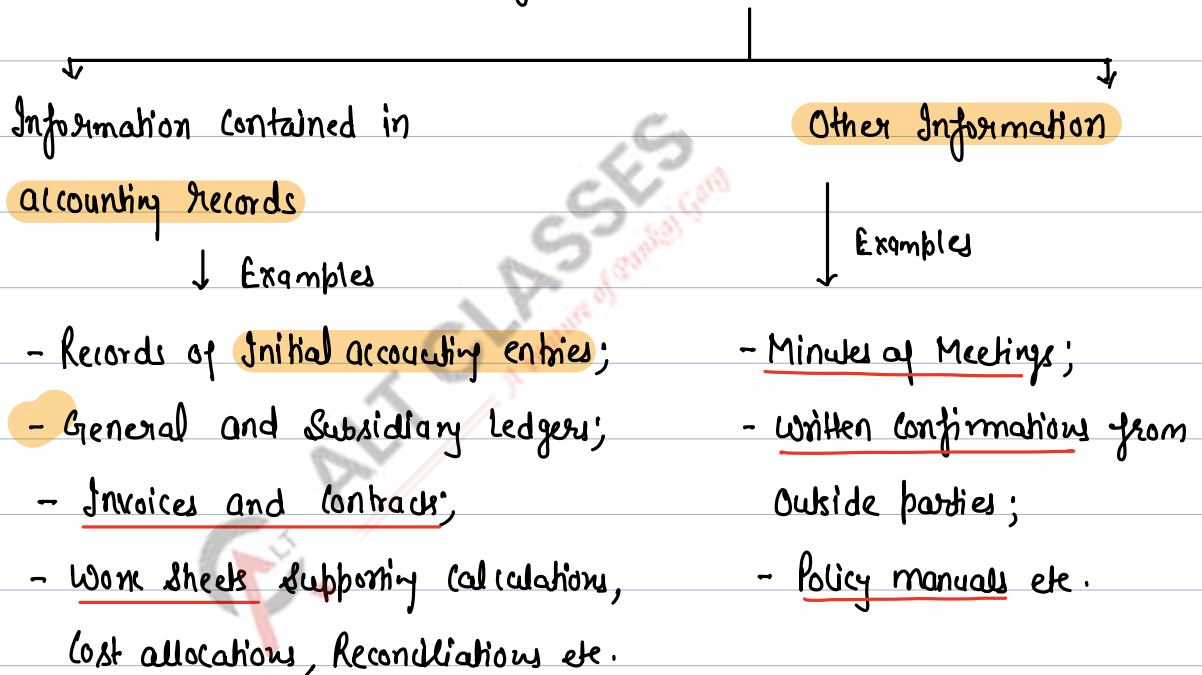 Information Contained in
accounting records
Examples
- Records of Initial accounting entries;
- General and Subsidiary Ledgers;
- Invoices and Contracts;
- Work Sheets Supporting Calculations,
Cost allocations, Reconciliations etc.
Other Information
Examples
- Minutes of Meetings;
- Written Confirmations from
Outside parties;
- Policy manuals etc.
ALT CLASSES
A Venture of Pankaj Garg
ALT